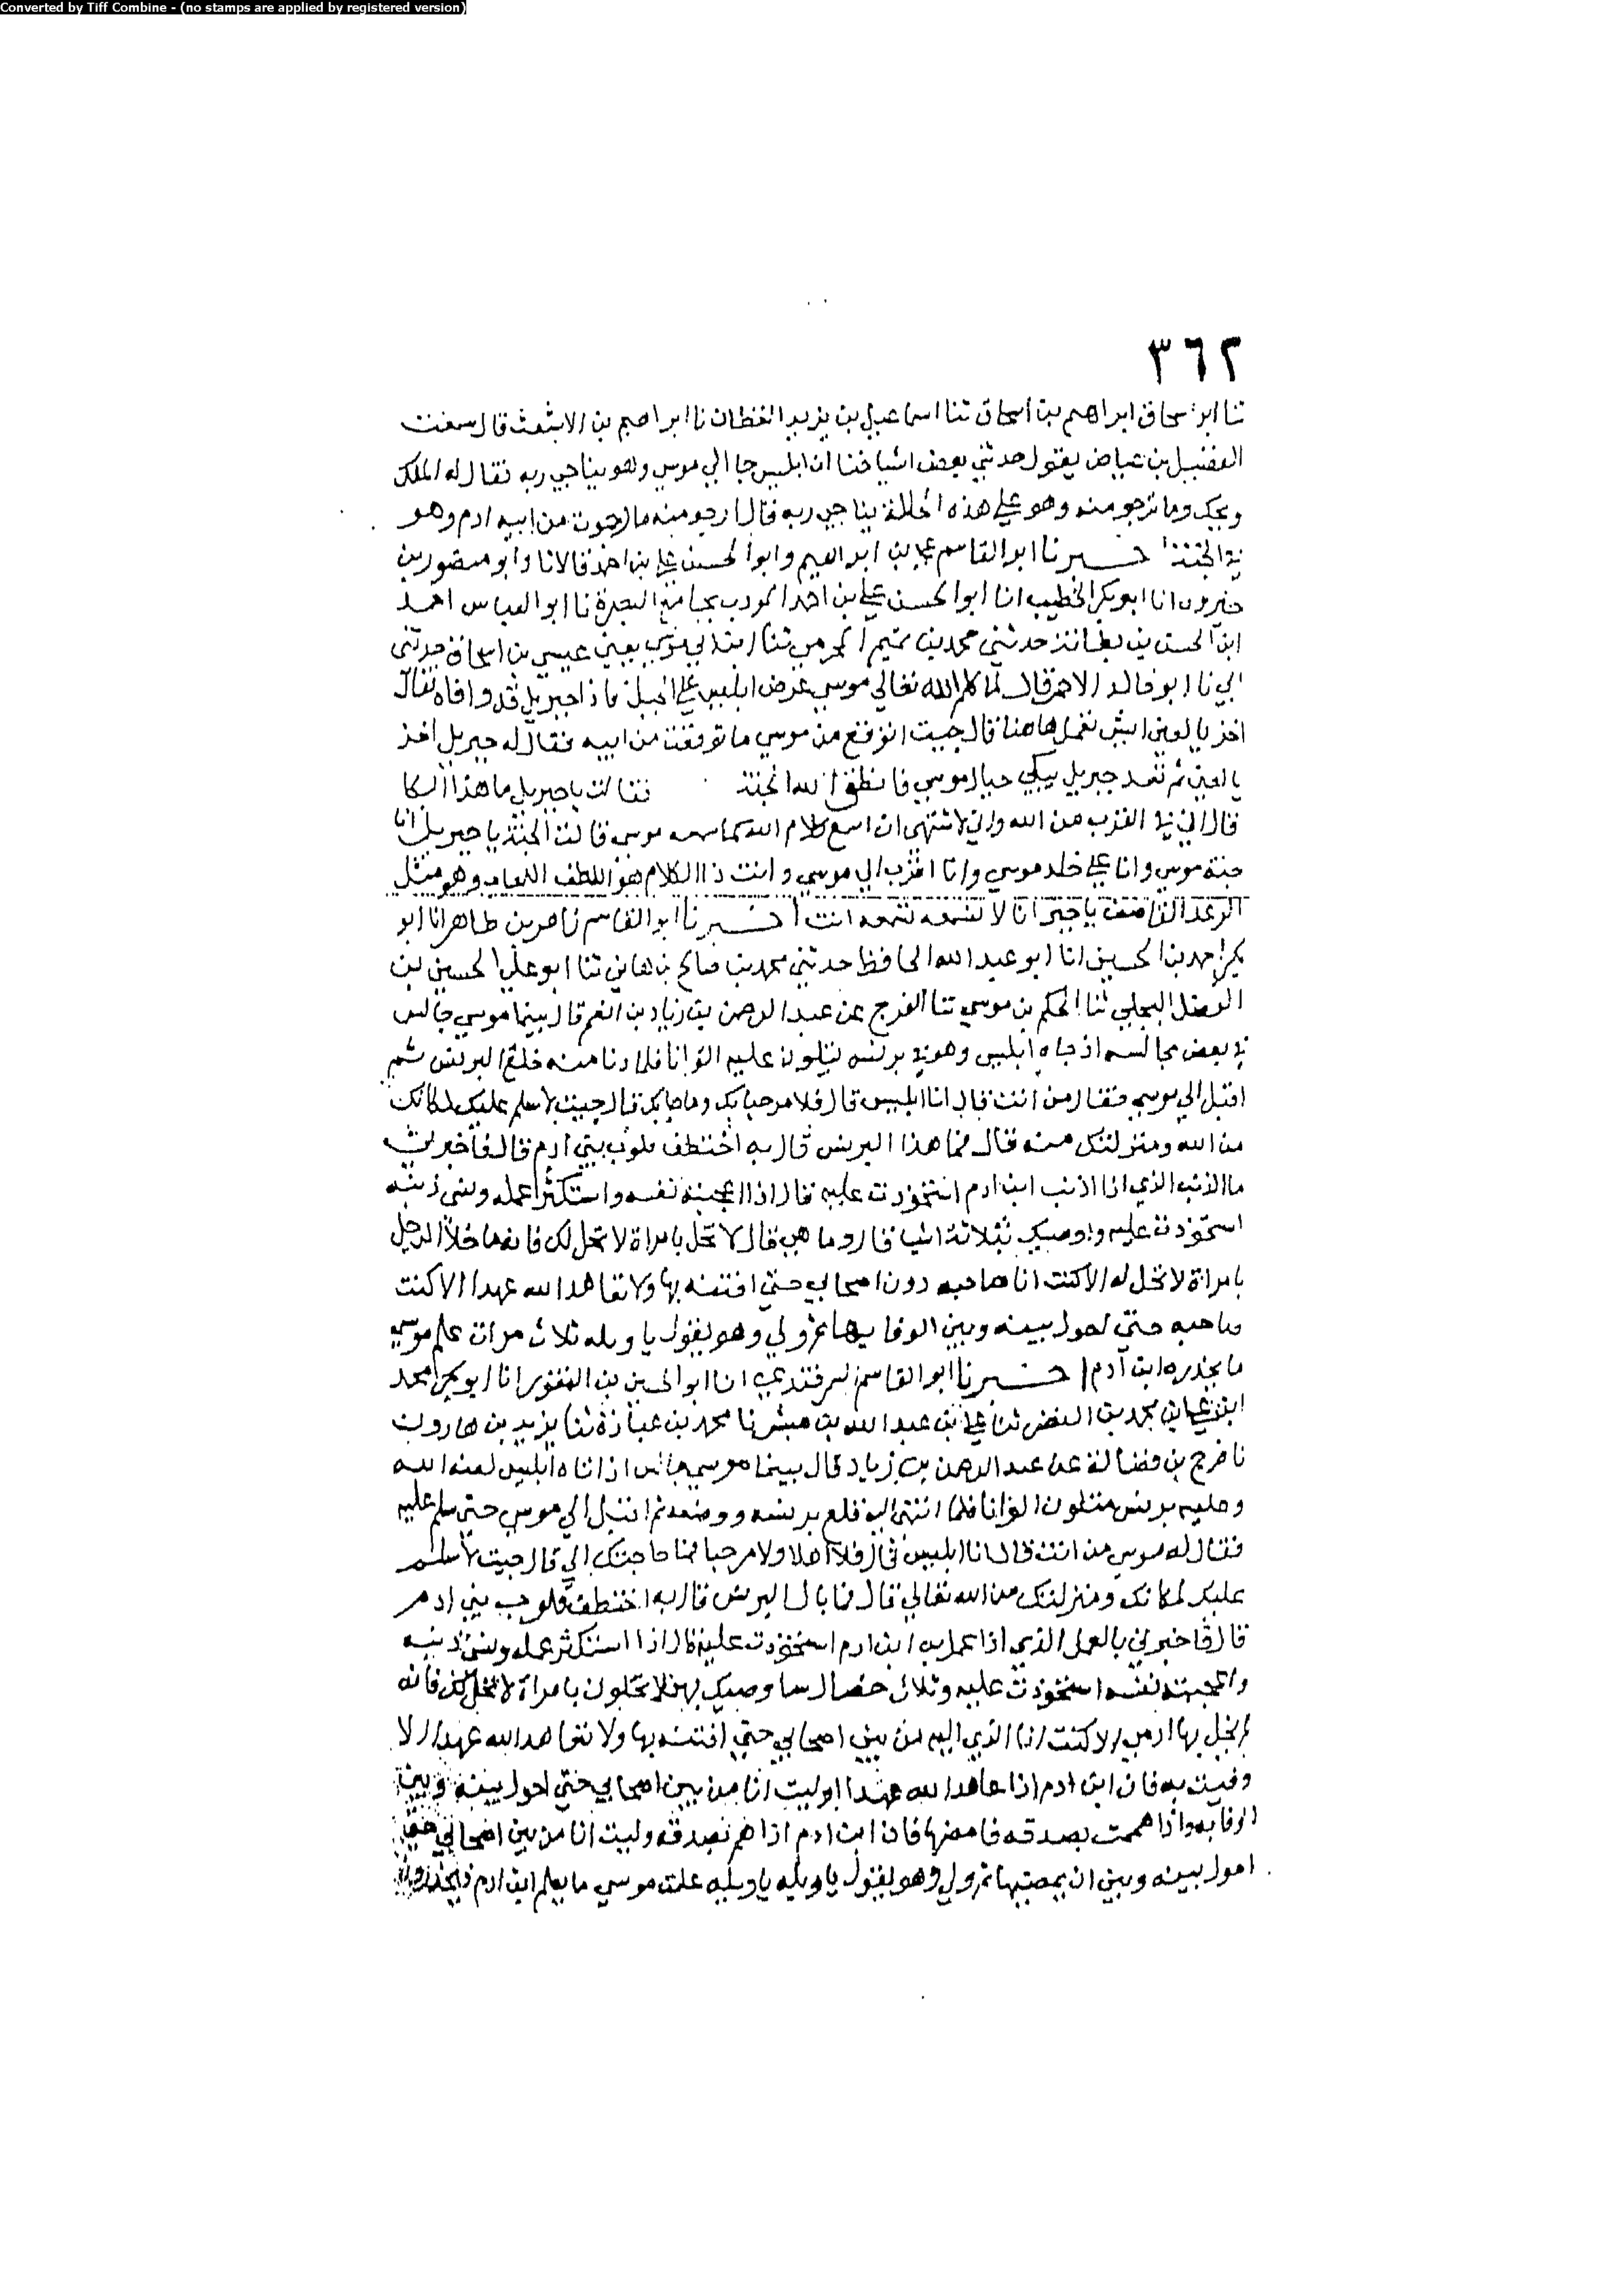 Converted by Tiff Combine - (no stamps are applied by registered version)
٣٦٢
ثنا ابو سحاق ابراهيم بن اسحاق ثنا اسماعيل بن يزيد القطان نا ابراهيم بن الاشعث قال سمعت
الفضيل بن عياض يقول حدثني بعض اشياخنا ان ابليس جا الي موسي وهو يناجي ربه فقال له الملك
ويحك وما ترجو منه وهو علي هذه الحالة يناجي ربه قال ارجو منه ما رجوت من ابيه ادم وهو
في الجنة اخبرنا ابو القاسم علي بن ابراهيم وابو الحسن علي بن احمد قالا نا وابو منصور بن
خيرون انا ابو بكر الخطيب انا ابو الحسن علي بن احمد المودب بجامع البصرة نا ابو العباس احمد
ابن الحسن بن حدثني محمد بن تميم ثنا ابن ابي موسي يعني عيسي بن اسحاق حدثني
ابي نا ابو خالد الاحمر قال لما كلم الله تعالي موسي عرض ابليس علي الجبل فاذا جبريل قد وافاه فقال
اخز يا لعين ايش تعمل هاهنا قال جيت اتوقع من موسي ما توقعت من ابيه فقال له جبريل اخز
يا لعين ثم قعد جبريل يبكي حيال موسي فانطق الله الجنة فقالت يا جبريل ما هذا البكا
قال اني في القرب من الله واني لاشتهي ان اسمع كلام الله كما سمعه موسي قالت الجنة يا جبريل انا
جنة موسي وانا علي جلد موسي وانا اقرب الي موسي وانت ذا الكلام هو اللطف وهو مثل
الرعد القاصف يا جبر انا لا تسمعه انت اخبرنا ابو القاسم زاهر بن طاهر انا ابو
بكر احمد بن الحسين انا ابو عبد الله الحافظ حدثني محمد بن صالح بن هاني ثنا ابو علي الحسين بن
الفضل البجلي ثنا الحكم بن موسي ثنا الفرج عن عبد الرحمن بن زياد بن انعم قال بينما موسي جالس
في بعض مجالسه اذ جاه ابليس وهو في برنسه يتلون عليه الوانا فلما دنا منه خلع البرنس ثم
اقبل الي موسي فقال من انت قال انا ابليس قال فلا مرحبا بك وما جا بك قال جيت لاسلم عليك لمكانك
من الله ومنزلتك منه قال فما هذا البرنس قال به اختطف قلوب بني ادم قال فاخبرني
ما الذنب الذي اذا اذنب ابن ادم استحوذت عليه قال اذا اعجبته نفسه واستكثر عمله ونسي ذنبه
استحوذت عليه واوصيك بثلاثة اشيا قال وما هي قال لا تخل بامراة لا تحل لك فانه ما خلا الرجل
بامراة لا تحل له الا كنت انا صاحبه دون اصحابي حتي افتنه بها ولا تعاهد الله عهدا الا كنت
صاحبه حتي احول بينه وبين الوفا بها ثم ولي وهو يقول يا ويله ثلاث مرات علم موسي
ما يحذره ابن آدم اخبرنا ابو القاسم السمرقندي انا ابو الحسين بن النقور انا ابو بكر محمد
ابن علي بن محمد بن النضر ثنا علي بن عبد الله بن مبشر نا محمد بن عبادة ثنا يزيد بن هارون
نا فرج بن فضالة عن عبد الرحمن بن زياد قال بينما موسي جالس اذ اتاه ابليس لعنه الله
وعليه برنس متلون الوانا فلما انتهي اليه قلع برنسه ووضعه ثم اقبل الي موسي حتي سلم عليه
فقال له موسي من انت قال انا ابليس قال فلا اهلا ولا مرحبا فما حاجتك الي قال جيت لاسلم
عليك لمكانك ومنزلتك من الله تعالي قال فما بال البرنس قال به اختطف قلوب بني ادم
قال فاخبرني بالعمل الذي اذا عمل به ابن ادم استحوذت عليه قال اذا استكثر عمله ونسي ذنبه
واعجبته نفسه استحوذت عليه وثلاث خصال ساوصيك بهن لا تخلون بامراة لا تحل لك فانه
لم يخل بها ادمي الا كنت انا الذي اليه من بين اصحابي حتي افتنه بها ولا تعاهد الله عهدا الا
وفيت به فان ابن ادم اذا عاهد الله عهدا وليت انا من بين اصحابي حتي احول بينه وبين
الوفا به واذا هممت بصدقة فامضها فان ابن ادم اذا هم بصدقه وليت انا من بين اصحابي حتي
احول بينه وبين ان يمضيها ثم ولي وهو يقول يا ويله يا ويله علمت موسي ما يعلم ابن ادم